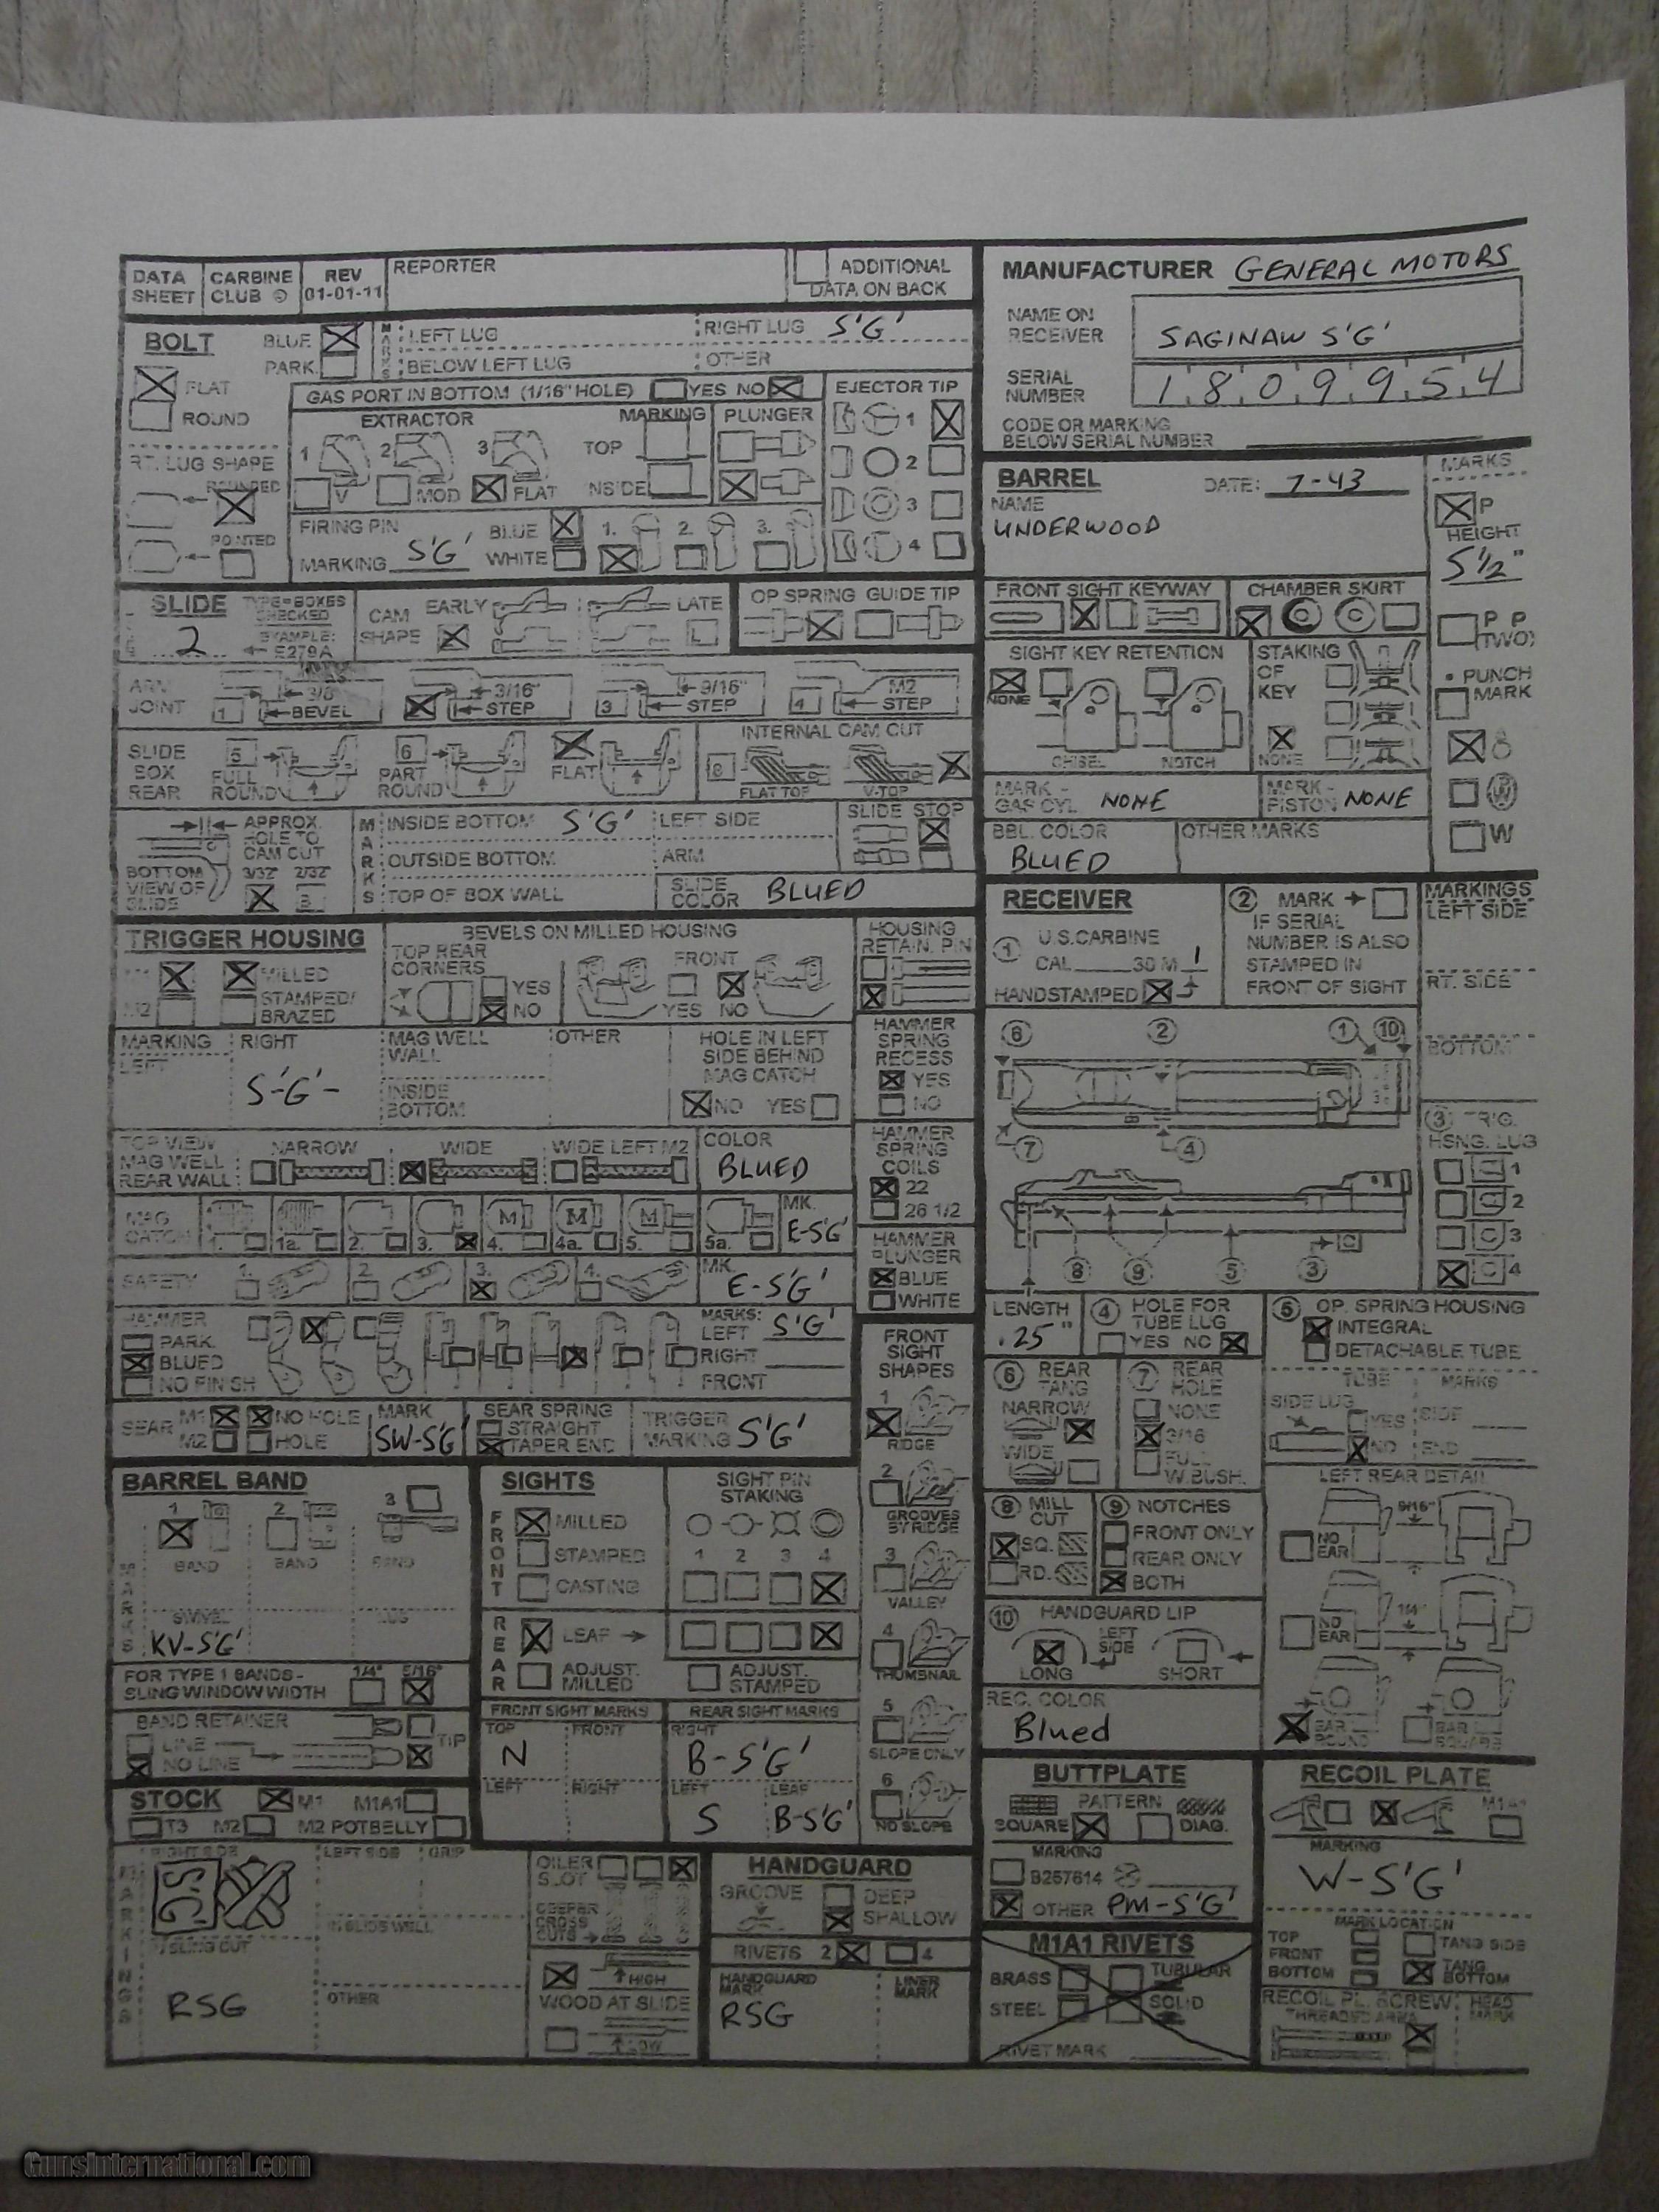 DATA SHEET
CARBINE CLUB ©
REV 01-01-11
REPORTER
ADDITIONAL DATA ON BACK
MANUFACTURER GENERAL MOTORS
NAME ON RECEIVER
SAGINAW S'G'
SERIAL NUMBER
1 8 0 9 9 5 4
CODE OR MARKING BELOW SERIAL NUMBER
BOLT
BLUE
PARK.
FLAT
ROUND
MARKS
LEFT LUG
RIGHT LUG S'G'
BELOW LEFT LUG
OTHER
GAS PORT IN BOTTOM (1/16" HOLE) YES NO
EJECTOR TIP
1
2
3
4
RT. LUG SHAPE
ROUNDED
POINTED
EXTRACTOR
1 2 3
V MOD FLAT
MARKING
TOP
INSIDE
PLUNGER
FIRING PIN
BLUE
WHITE
1. 2. 3.
MARKING S'G'
BARREL
DATE: 7-43
NAME
UNDERWOOD
MARKS
P
HEIGHT
5 1/2"
P P (TWO)
PUNCH MARK
W
FRONT SIGHT KEYWAY
CHAMBER SKIRT
SIGHT KEY RETENTION
NONE
CHISEL
NOTCH
STAKING OF KEY
NONE
MARK - GAS CYL. NONE
MARK - PISTON NONE
BBL. COLOR
BLUED
OTHER MARKS
SLIDE
TYPE=BOXES CHECKED
EXAMPLE: E279A
2
CAM SHAPE
EARLY
LATE
OP SPRING GUIDE TIP
ARM JOINT
1 3/8 BEVEL
3/16" STEP
3 9/16" STEP
4 M2 STEP
SLIDE BOX REAR
5 FULL ROUND
6 PART ROUND
FLAT
INTERNAL CAM CUT
8 FLAT TOP
V-TOP
APPROX. HOLE TO CAM CUT
BOTTOM VIEW OF SLIDE
3/32" 2/32"
MARKS
INSIDE BOTTOM S'G'
LEFT SIDE
OUTSIDE BOTTOM
ARM
TOP OF BOX WALL
SLIDE COLOR BLUED
SLIDE STOP
TRIGGER HOUSING
M2
MILLED
STAMPED/BRAZED
BEVELS ON MILLED HOUSING
TOP REAR CORNERS
YES
NO
FRONT
YES NO
HOUSING RETAIN. PIN
MARKING
LEFT
RIGHT
S-'G'-
MAG WELL WALL
INSIDE BOTTOM
OTHER
HOLE IN LEFT SIDE BEHIND MAG CATCH
NO YES
HAMMER SPRING RECESS
YES
NO
TOP VIEW MAG WELL REAR WALL
NARROW
WIDE
WIDE LEFT M2
COLOR
BLUED
HAMMER SPRING COILS
22
26 1/2
MAG CATCH
1. 1a. 2. 3. 4. 4a. 5. 5a.
M M M
MK. E-S'G'
SAFETY
1. 2. 3. 4.
MK. E-S'G'
HAMMER PLUNGER
BLUE
WHITE
HAMMER
PARK.
BLUED
NO FINISH
MARKS:
LEFT S'G'
RIGHT
FRONT
SEAR
M1 NO HOLE
M2 HOLE
MARK
SW-S'G'
SEAR SPRING
STRAIGHT
TAPER END
TRIGGER MARKING S'G'
RECEIVER
1 U.S.CARBINE
CAL 30 M 1
HANDSTAMPED
2 MARK
IF SERIAL NUMBER IS ALSO STAMPED IN FRONT OF SIGHT
MARKINGS
LEFT SIDE
RT. SIDE
BOTTOM
6 2 1 10
7 4
8 9 5 3
3 TRIG. HSNG. LUG
1
2
3
4
LENGTH
.25"
4 HOLE FOR TUBE LUG
YES NO
5 OP. SPRING HOUSING
INTEGRAL
DETACHABLE TUBE
TUBE MARKS
SIDE LUG
YES
NO
SIDE
END
6 REAR TANG
NARROW
WIDE
7 REAR HOLE
NONE
3/16
FULL W.BUSH.
8 MILL CUT
SQ.
RD.
9 NOTCHES
FRONT ONLY
REAR ONLY
BOTH
10 HANDGUARD LIP
LEFT SIDE
LONG
SHORT
LEFT REAR DETAIL
NO EAR 9/16"
NO EAR 1/4"
EAR ROUND
EAR SQUARE
REC. COLOR
Blued
BARREL BAND
1 2 3
BAND BAND BAND
MARKS
SWIVEL
LUG
KV-S'G'
FOR TYPE 1 BANDS - SLING WINDOW WIDTH
1/4" 5/16"
BAND RETAINER
LINE
NO LINE
TIP
SIGHTS
FRONT
MILLED
STAMPED
CASTING
SIGHT PIN STAKING
1 2 3 4
REAR
LEAF
ADJUST. MILLED
ADJUST. STAMPED
FRONT SIGHT MARKS
TOP
N
FRONT
LEFT
RIGHT
REAR SIGHT MARKS
RIGHT
B-S'G'
LEFT
S
LEAF
B-S'G'
FRONT SIGHT SHAPES
1 RIDGE
2 GROOVES BY RIDGE
3 VALLEY
4 THUMBNAIL
5 SLOPE ONLY
6 NO SLOPE
STOCK
M1 M1A1
T3 M2 M2 POTBELLY
MARKINGS
RIGHT SIDE
LEFT SIDE
GRIP
IN SLIDE WELL
SLING CUT
RSG
OTHER
OILER SLOT
DEEPER CROSS CUTS
HIGH
WOOD AT SLIDE
LOW
HANDGUARD
GROOVE
DEEP
SHALLOW
RIVETS 2 4
HANDGUARD MARK
RSG
LINER MARK
BUTTPLATE
PATTERN
SQUARE
DIAG.
MARKING
B257614
OTHER PM-S'G'
M1A1 RIVETS
BRASS
TUBULAR
STEEL
SOLID
RIVET MARK
RECOIL PLATE
M1A1
MARKING
W-S'G'
MARK LOCATION
TOP
FRONT
BOTTOM
TANG SIDE
TANG BOTTOM
RECOIL PL. SCREW
THREADED AREA
HEAD MARK
GunsInternational.com